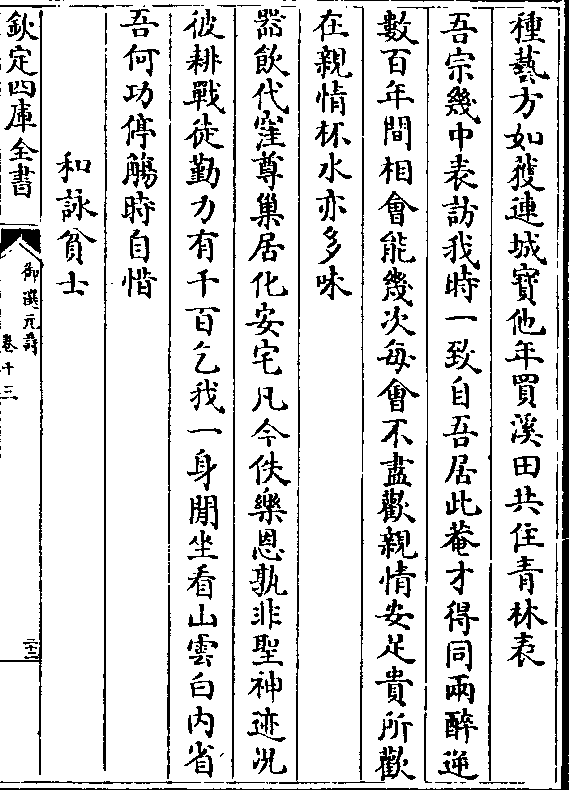 種藝方如獲連城寶他年買溪田共住青林表
吾宗幾中表訪我時一致自吾居此菴才得同兩醉逆
數百年間相會能幾次每會不盡歡親情安足貴所歡
在親情杯水亦多味
器飲代窪尊巢居化安宅凡今佚樂恩孰非聖神迹况
彼耕戰徒勤力有千百乞我一身閒坐看山雲白内省
吾何功停觴時自惜
和詠貧士
欽定四庫全書
御選元詩
卷十三